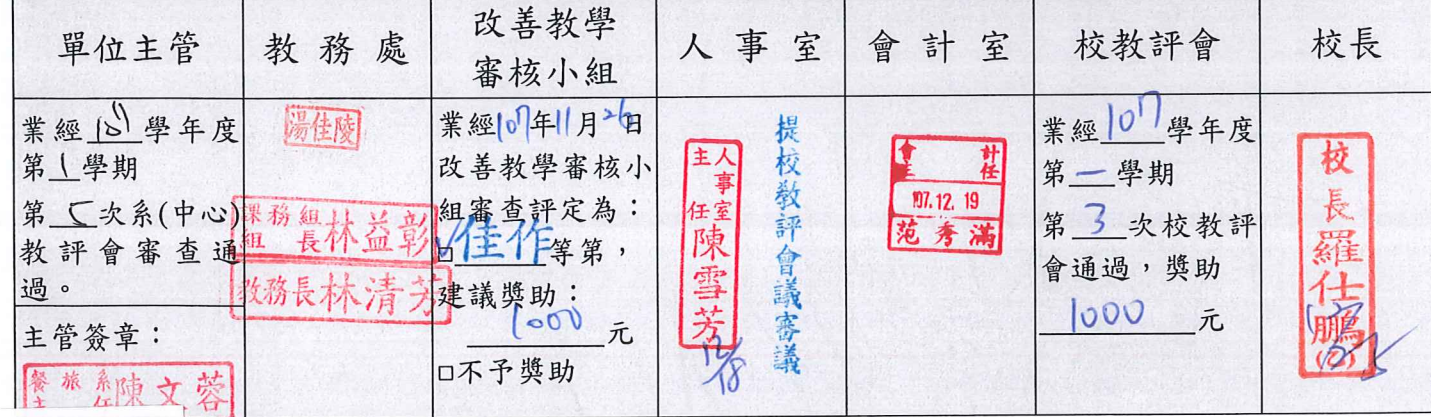 單位主管
教務處
改善教學
審核小組
人事室
會計室
校教評會
校長
業經107學年度
第1學期
第5次系(中心)
教評會審查通
過。
主管簽章：
餐旅系
主任
陳文蓉
湯佳陵
課務組
組長
林益彰
教務長林清芳
業經107年11月26日
改善教學審核小
組審查評定為：
□佳作等第，
建議獎助：
1000元
□不予獎助
人事室
主任
陳雪芳
12/18
提校教評會議審議
會計
主任
107.12.19
范秀滿
業經107學年度
第一學期
第3次校教評
會通過，獎助
1000元
校長羅仕鵬